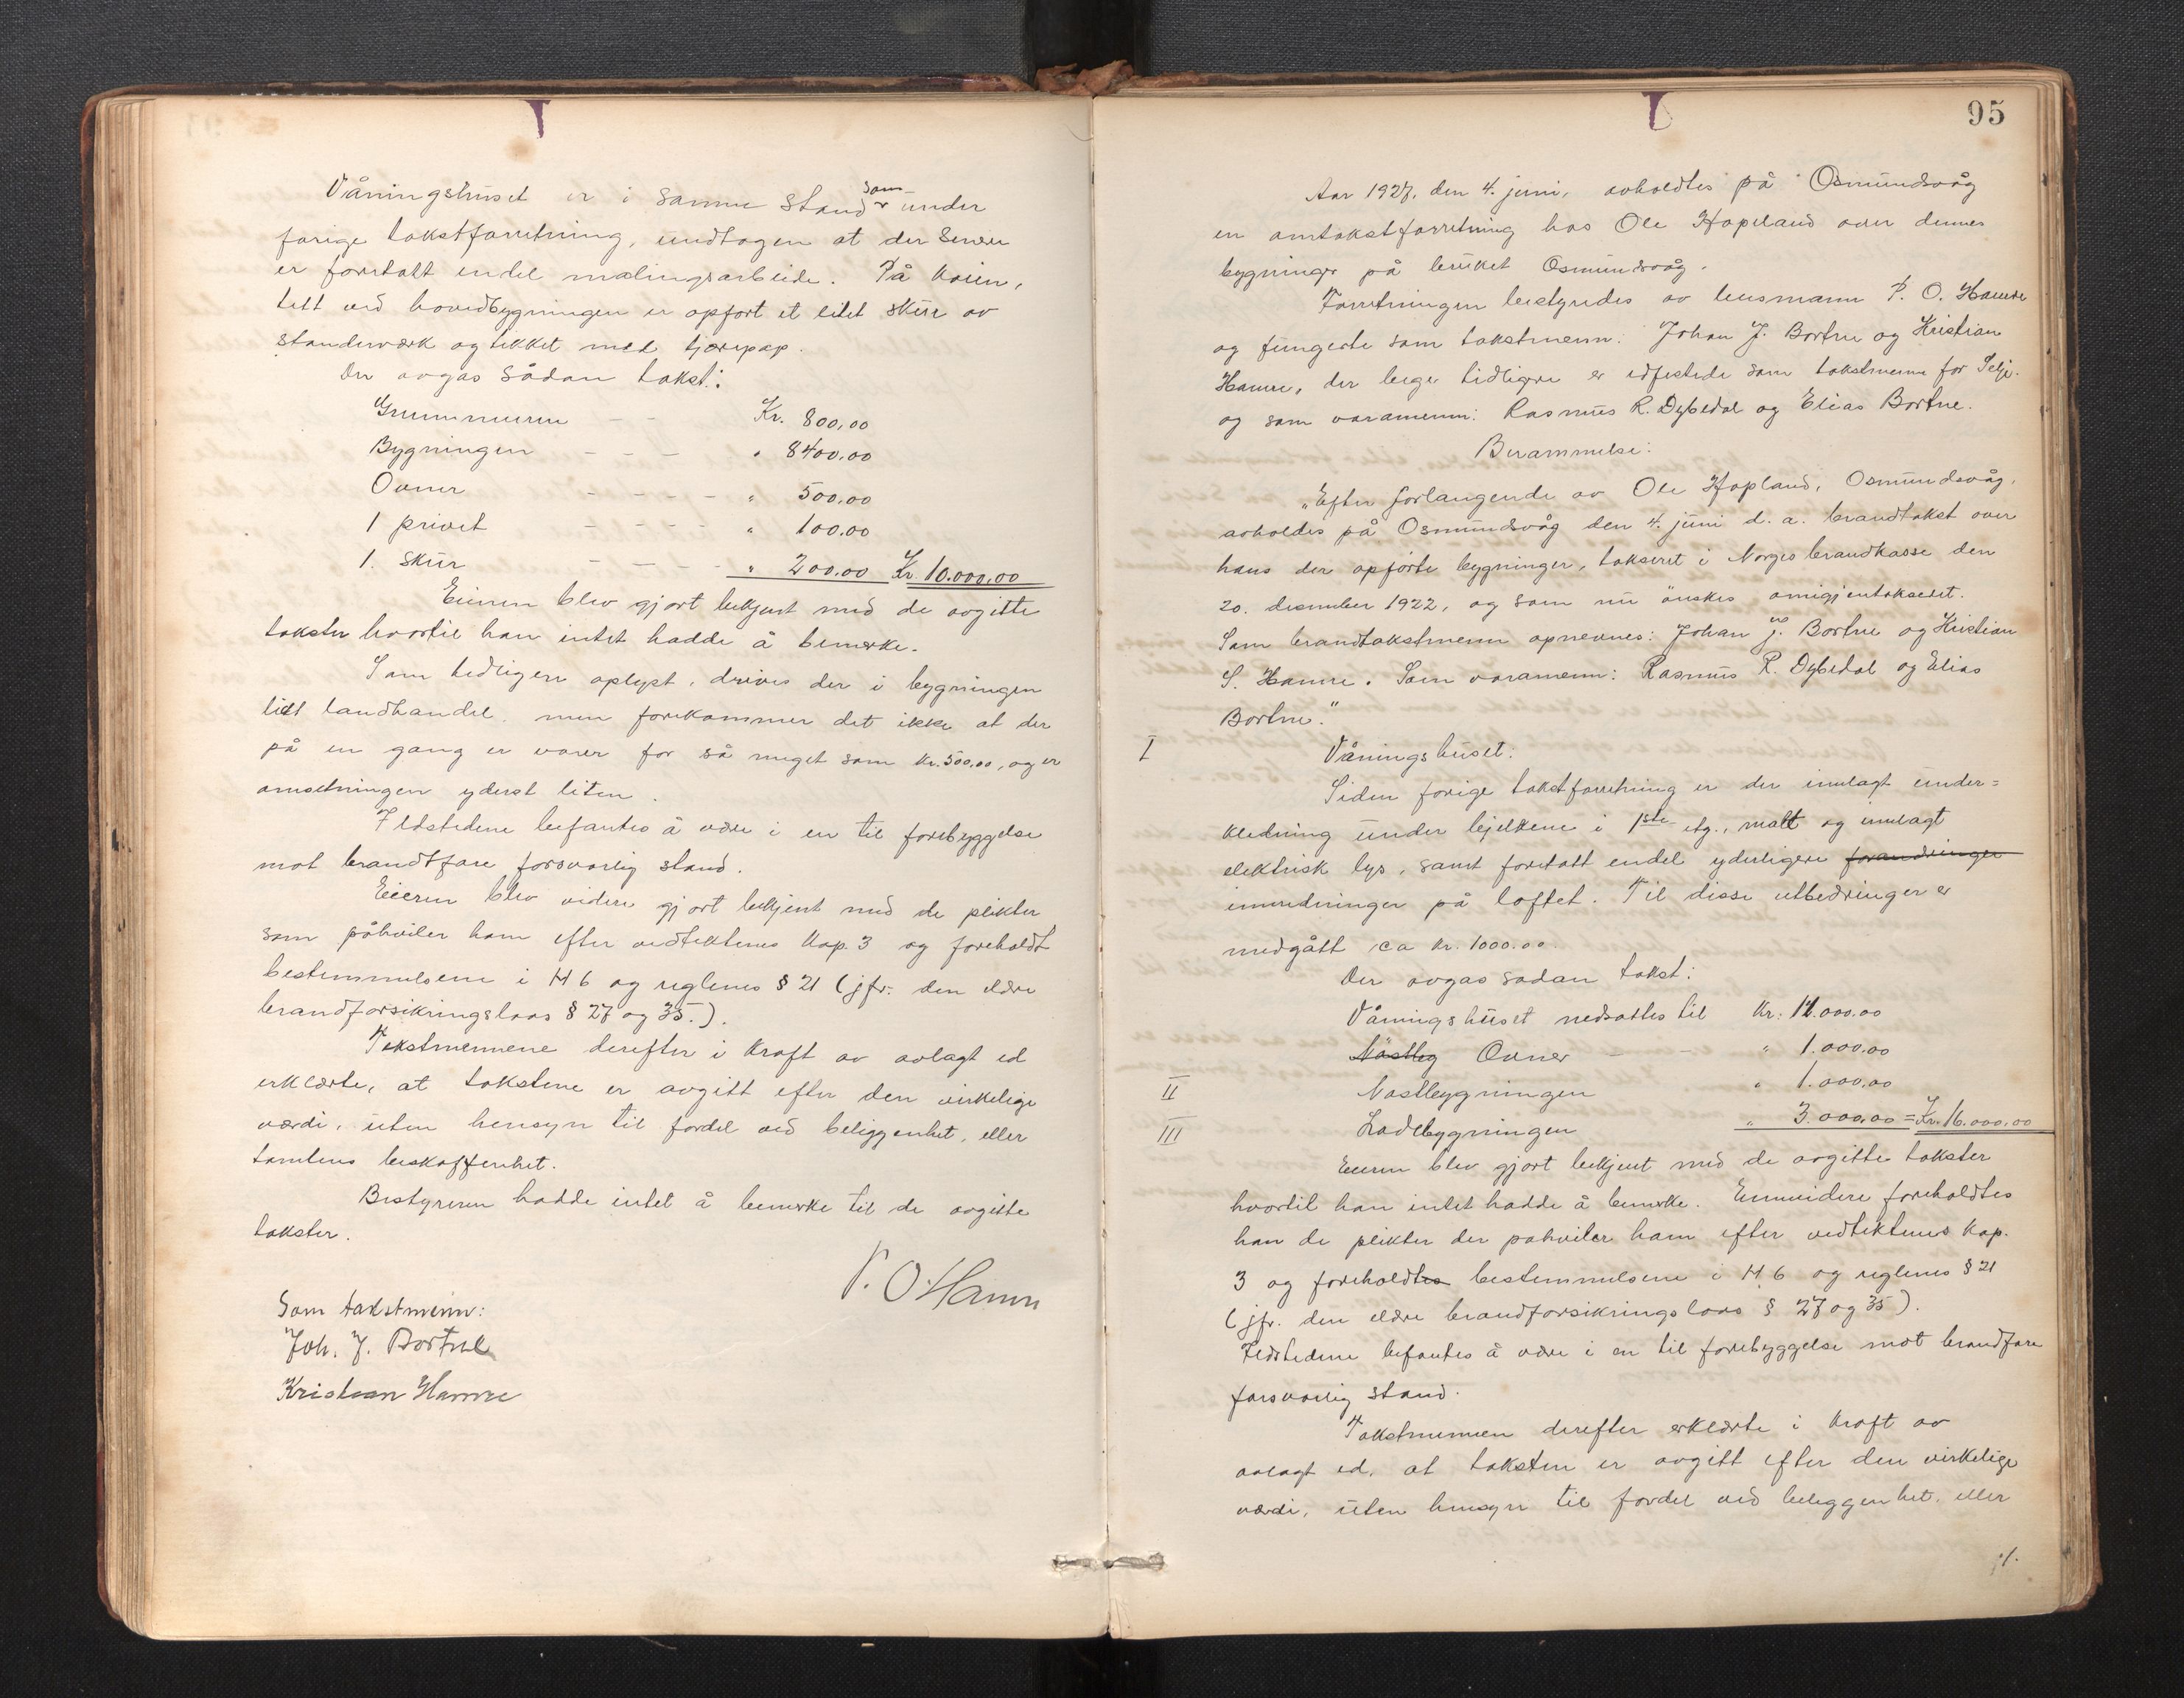 Våningshuset er i samme stand som under
forige takstforretning, undtagen at der senere
er foretatt endel malingsarbeide. På kaien,
tett ved hovedbygningen er opført et litet skur av
standerværk og tekket med tjærepap.
Der avgas sådan takst:
Grunnmuren - - Kr. 800,00
Bygningen - - - " 8400.00
Ovner - - - - " 500.00
1 privet - - - - " 100.00
1. skur - - - - " 200.00 Kr. 10.000,00
Eieren blev gjort bekjent med de avgitte
takster hvortil han intet hadde å bemerke.
Som tidligere oplyst, drives der i bygningen
litt landhandel, men forekommer det ikke at der
på en gang er varer for så meget som kr. 500.00, og er
omsetningen yderst liten.
Ildstedene befantes å være i en til forebyggelse
mot brandtfare forsvarlig stand.
Eieren blev videre gjort bekjent med de plikter
som påhviler ham efter vedtektenes kap. 3 og foreholdt
bestemmelsene i H 6 og reglenes § 21 (jfr. den eldre
brandforsikringslovs § 27 og 35.).
Takstmennene derefter i kraft av avlagt ed
erklærte, at takstene er avgitt efter den virkelige
værdi, uten hensyn til fordel ved beliggenhet, eller
tomtens beskaffenhet.
Bestyreren hadde intet å bemerke til de avgitte
takster.
P. O. Hamre
Som takstmenn:
Joh. J. Bortne
Kristian Hamre
95
Aar 1927, den 4. juni, avholdtes på Osmundsvåg
en omtakstforretning hos Ole Hopland over dennes
bygninger på bruket Osmundsvåg.
Forretningen bestyredes av lensmann P. O. Hamre
og fungerte som takstmenn: Johan J. Bortne og Kristian
Hamre, der begge tidligere er edfestede som takstmenn for Selje.
og som varamenn: Rasmus R. Dybedal og Elias Bortne.
Berammelse:
"Efter forlangende av Ole Hopland, Osmundsvåg,
avholdes på Osmundsvåg den 4. juni d. a. brandtakst over
hans der opførte bygninger, taksert i Norges brandkasse den
20. desember 1922, og som nu ønskes omigjentakseret.
Som brandtakstmenn opnevnes: Johan J. Bortne og Kristian
S. Hamre. Som varamenn: Rasmus R. Dybedal og Elias
Bortne."
I Våningshuset:
Siden forige takstforretning er der innlagt under=
kledning under bjelkene i 1ste etg., malt og innlagt
elektrisk lys, samt foretatt endel yderligere forandringer
innredninger på loftet. Til disse utbedringer er
medgått ca kr. 1000.00.
Der avgas sadan takst:
Våningshuset nedsattes til Kr. 11.000.00
Nöstbyg Ovner - - " 1.000.00
II Nostbygningen " 1.000,00
III Ladebygningen " 3.000,00 = Kr. 16.000.00
Eieren blev gjort bekjent med de avgitte takster
hvortil han intet hadde å bemerke. Ennvidere foreholdtes
han de plikter der pahviler ham efter vedtektenes kap.
3 og foreholdtes bestemmelsene i H 6 og reglenes § 21
(jfr. den eldre brandforsikringslovs § 27 og 35).
Ildstedene befantes å være i en til forebyggelse mot brandfare
forsvarlig stand.
Takstmennen derefter erklærte i kraft av
avlagt ed, at taksten er avgitt efter den virkelige
værdi, uten hensyn til fordel ved beliggenhet, eller
./.